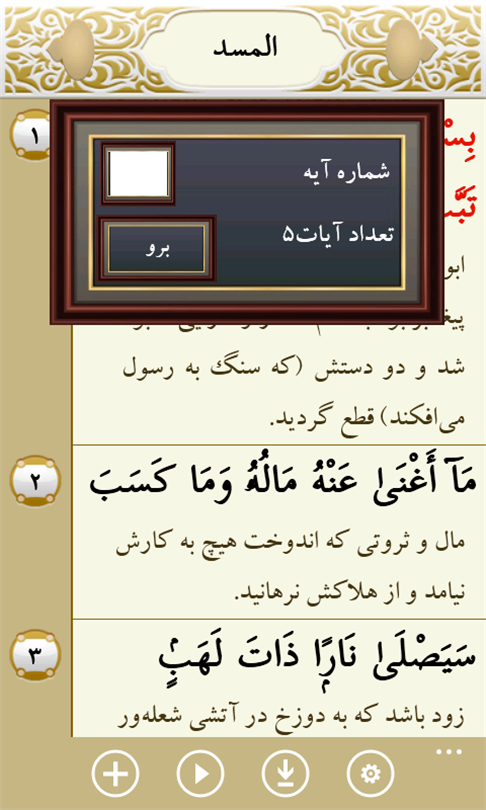 المسد
شماره آیه
تعداد آیات۵
برو
۱
بِسْ
تَبَّتْ
ابو
شد و دو دستش (که سنگ به رسول
می‌افکند) قطع گردید.
۲
مَآ أَغْنَىٰ عَنْهُ مَالُهُۥ وَمَا كَسَبَ
مال و ثروتی که اندوخت هیچ به کارش
نیامد و از هلاکش نرهانید.
۳
سَيَصْلَىٰ نَارًۭا ذَاتَ لَهَبٍۢ
زود باشد که به دوزخ در آتشی شعله‌ور